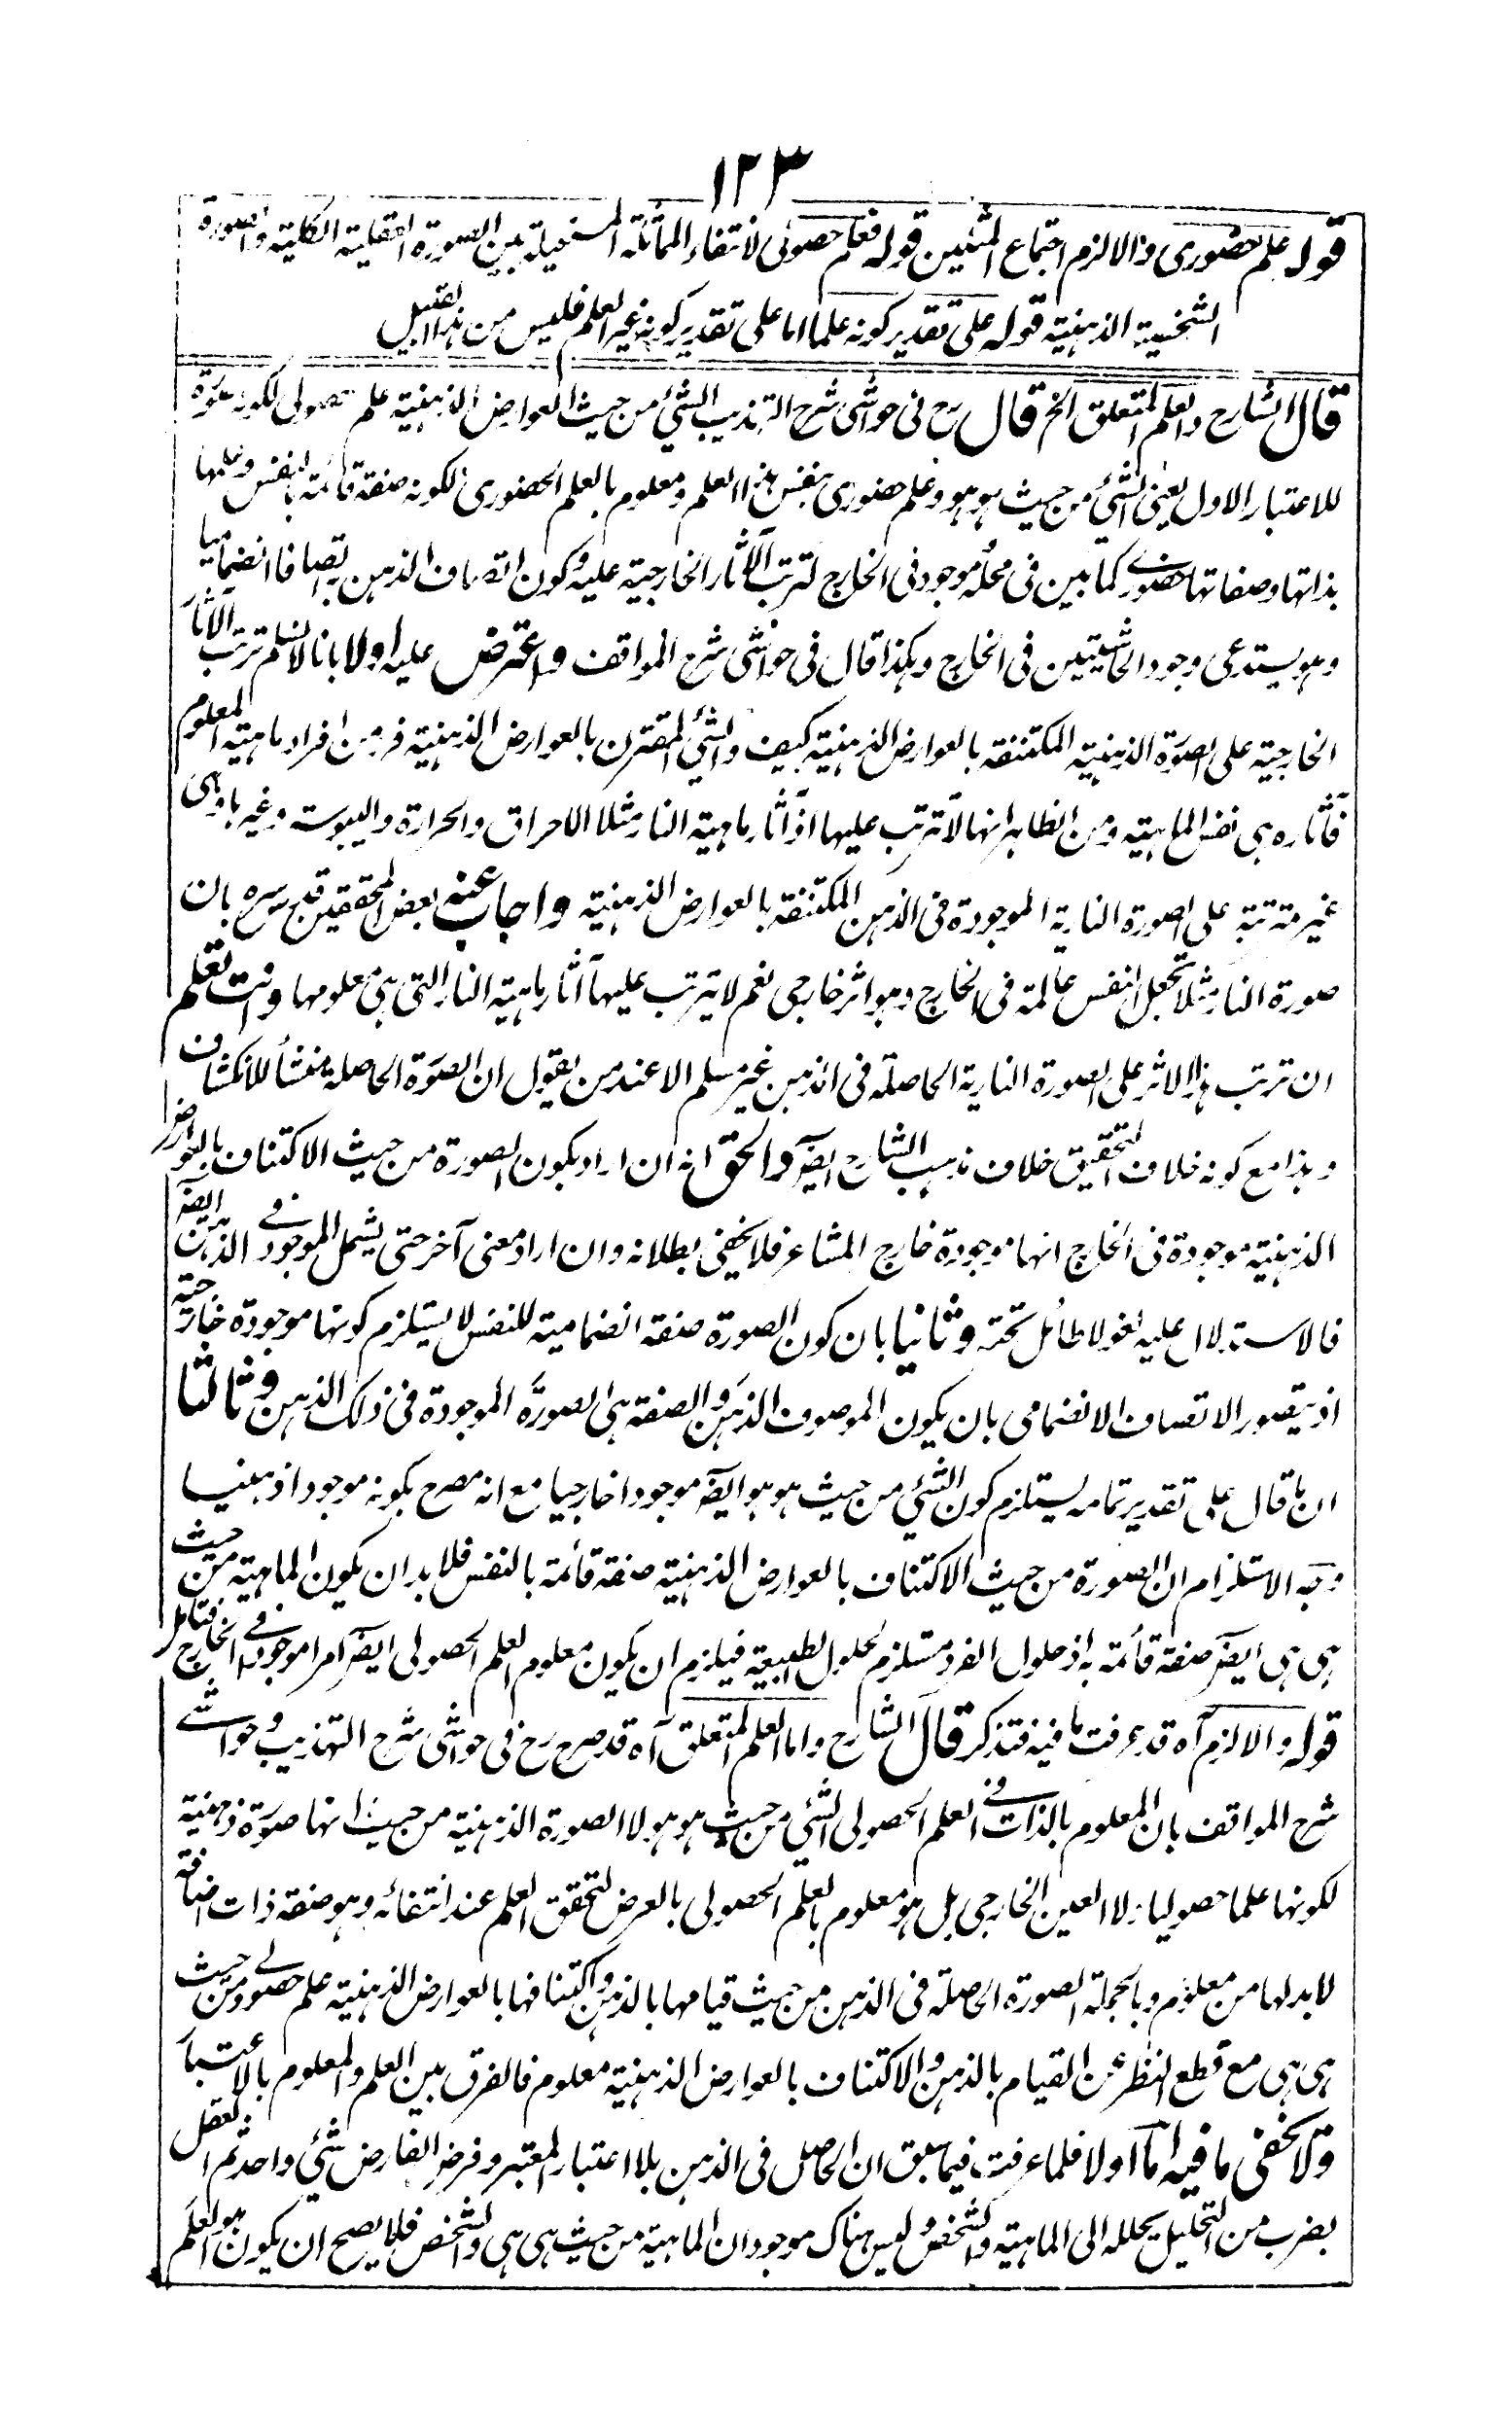 ١٢٣
قوله علم حضوري والا لزم اجتماع المثلين قوله فعلم حصولي لانتفاء المماثلة المستحيلة بين الصورة العقلية الكلية والصورة
الشخصية الذهنية قوله على تقدير كونه علما اما على تقدير كونه غير العلم فليس من هذا القبيل
قال الشارح والعلم المتعلق الخ قال رح في حواشي شرح التهذيب الشيء من حيث العوارض الذهنية علم حصولي لكونه صورة
للاعتبار الاول يعني الشيء من حيث هو هو وعلم حضوري بنفس هذا العلم ومعلوم بالعلم الحضوري لكونه صفة قائمة بالنفس وعلمها
بذاتها وصفاتها حضوري كما بين في محله موجود في الخارج لترتب الآثار الخارجية عليه وكون اتصاف الذهن به اتصافا انضماميا
وهو يستدعي وجود الحاشيتين في الخارج وهكذا قال في حواشي شرح المواقف واعترض عليه اولا بانا لا نسلم ترتب الآثار
الخارجية على الصورة الذهنية المكتنفة بالعوارض الذهنية كيف والشيء المقترن بالعوارض الذهنية فرد من افراد ماهية المعلوم
فآثاره هي نفس الماهية ومن الظاهر انها لا تترتب عليها اذ آثار ماهية النار مثلا الاحراق والحرارة واليبوسة وغيرها وهي
غير مترتبة على الصورة النارية الموجودة في الذهن المكتنفة بالعوارض الذهنية واجاب عنه بعض المحققين قدس سره بان
صورة النار مثلا تجعل النفس عالمة في الخارج وهو اثر خارجي نعم لا يترتب عليها آثار ماهية النار التي هي معلومها وانت تعلم
ان ترتب هذا الاثر على الصورة النارية الحاصلة في الذهن غير مسلم الا عند من يقول ان الصورة الحاصلة منشأ للانكشاف
وهذا مع كونه خلاف التحقيق خلاف مذهب الشارح ايضا والحق انه ان اراد بكون الصورة من حيث الاكتناف بالعوارض
الذهنية موجودة في الخارج انها موجودة خارج المشاعر فلا يخفى بطلانه وان اراد معنى آخر حتى يشمل الموجود في الذهن ايضا
فالاستدلال عليه لغو لا طائل تحته وثانيا بان كون الصورة صفة انضمامية للنفس لا يستلزم كونها موجودة خارجية
اذ يتصور الاتصاف الانضمامي بان يكون الموصوف الذهن والصفة هي الصورة الموجودة في ذلك الذهن وثالثا
ان ما قال على تقدير تمامه يستلزم كون الشيء من حيث هو هو ايضا موجودا خارجيا مع انه مصرح بكونه موجودا ذهنيا
وجه الاستلزام ان الصورة من حيث الاكتناف بالعوارض الذهنية صفة قائمة بالنفس فلا بد ان يكون الماهية من حيث
هي هي ايضا صفة قائمة به اذ حلول الفرد مستلزم لحلول الطبيعة فيلزم ان يكون معلوم العلم الحصولي ايضا امرا موجودا في الخارج فتامل
قوله والا لزم آه قد عرفت ما فيه فتذكر قال الشارح واما العلم المتعلق آه قد صرح رح في حواشي شرح التهذيب وحواشي
شرح المواقف بان المعلوم بالذات في العلم الحصولي الشيء من حيث هو هو لا الصورة الذهنية من حيث انها صورة ذهنية
لكونها علما حصوليا ولا العين الخارجي بل هو معلوم بالعلم الحصولي بالعرض لتحقق العلم عند انتفائه وهو صفة ذات اضافة
لا بد لها من معلوم وبالجملة الصورة الحاصلة في الذهن من حيث قيامها بالذهن واكتنافها بالعوارض الذهنية علم حصولي ومن حيث
هي هي مع قطع النظر عن القيام بالذهن والاكتناف بالعوارض الذهنية معلوم فالفرق بين العلم والمعلوم بالاعتبار
ولا يخفى ما فيه اما اولا فلما عرفت فيما سبق ان الحاصل في الذهن بلا اعتبار المعتبر وفرض الفارض شيء واحد ثم العقل
بضرب من التحليل يحلله الى الماهية والشخص وليس هناك موجودان الماهية من حيث هي هي والشخص فلا يصح ان يكون هو العلم